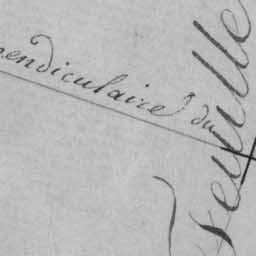 endiculaire du
feuille